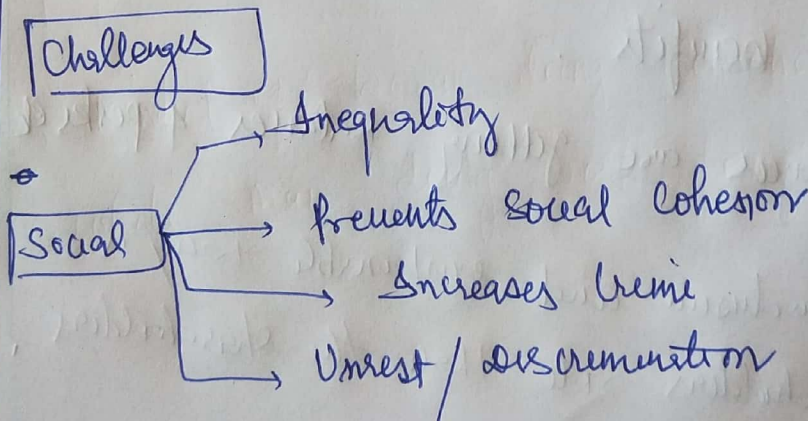 Challenges
Inequality
Social
Prevents social cohesion
Increases Crime
Unrest / Discrimination